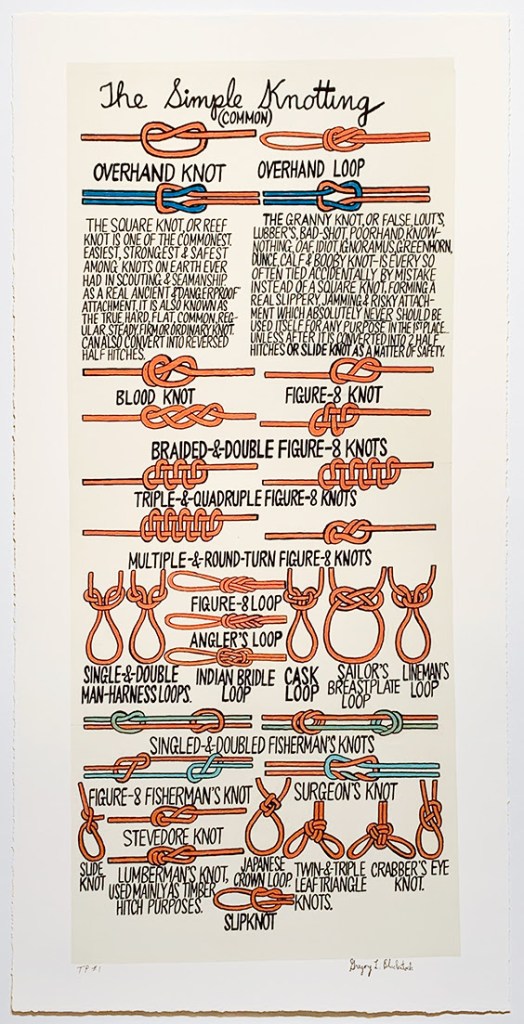 The Simple Knotting
(COMMON)
OVERHAND KNOT
OVERHAND LOOP
THE SQUARE KNOT, OR REEF
KNOT IS ONE OF THE COMMONEST,
EASIEST, STRONGEST & SAFEST
AMONG KNOTS ON EARTH EVER
HAD IN SCOUTING & SEAMANSHIP
AS A REAL ANCIENT & DANGERPROOF
ATTACHMENT. IT IS ALSO KNOWN AS
THE TRUE, HARD, FLAT, COMMON, REG-
ULAR, STEADY, FIRM OR ORDINARY KNOT.
CAN ALSO CONVERT INTO REVERSED
HALF HITCHES.
THE GRANNY KNOT, OR FALSE, LOUT'S,
LUBBER'S, BAD-SHOT, POORHAND, KNOW-
NOTHING, OAF, IDIOT, IGNORAMUS, GREENHORN,
DUNCE, CALF & BOOBY KNOT-IS EVERY SO
OFTEN TIED ACCIDENTALLY BY MISTAKE
INSTEAD OF A SQUARE KNOT, FORMING A
REAL SLIPPERY, JAMMING & RISKY ATTACH-
MENT WHICH ABSOLUTELY NEVER SHOULD BE
USED ITSELF FOR ANY PURPOSE IN THE 1ST PLACE...
UNLESS AFTER IT'S CONVERTED INTO 2 HALF
HITCHES OR SLIDE KNOT AS A MATTER OF SAFETY.
BLOOD KNOT
FIGURE-8 KNOT
BRAIDED-&-DOUBLE FIGURE-8 KNOTS
TRIPLE-&-QUADRUPLE FIGURE-8 KNOTS
MULTIPLE-&-ROUND-TURN FIGURE-8 KNOTS
FIGURE-8 LOOP
ANGLER'S LOOP
SINGLE-&-DOUBLE
MAN-HARNESS LOOPS.
INDIAN BRIDLE
LOOP
CASK
LOOP
SAILOR'S
BREASTPLATE
LOOP
LINEMAN'S
LOOP
SINGLED-&-DOUBLED FISHERMAN'S KNOTS
FIGURE-8 FISHERMAN'S KNOT
SURGEON'S KNOT
STEVEDORE KNOT
SLIDE
KNOT
LUMBERMAN'S KNOT,
USED MAINLY AS TIMBER
HITCH PURPOSES.
JAPANESE
CROWN LOOP.
TWIN-&-TRIPLE
LEAF TRIANGLE
KNOTS.
CRABBER'S EYE
KNOT.
SLIPKNOT
Gregory L.